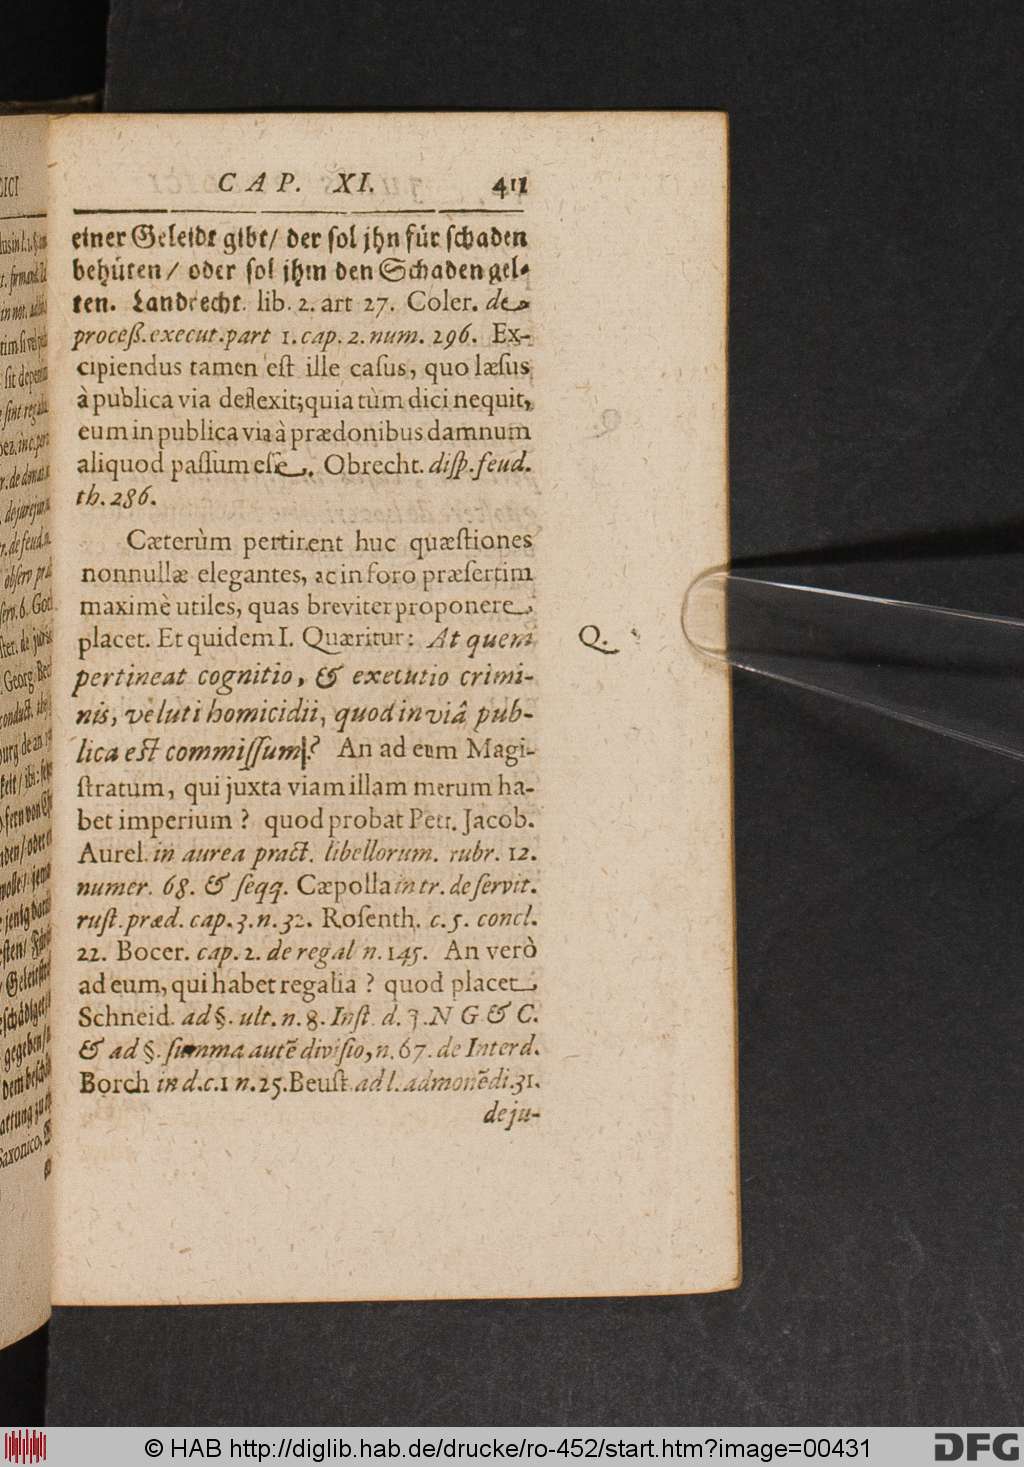 CAP. XI. 411
einer Geleidt gibt/ der sol jhn für schaden
behüten/ oder sol jhm den Schaden gel-
ten. Landrecht. lib. 2. art 27. Coler. de
proceß. execut. part 1. cap. 2. num. 296. Ex-
cipiendus tamen est ille casus, quo læsus
à publica via deflexit; quia tùm dici nequit,
eum in publica via à prædonibus damnum
aliquod passum esse. Obrecht. disp. feud.
th. 286.
Cæterùm pertinent huc quæstiones
nonnullæ elegantes, ac in foro præsertim
maximè utiles, quas breviter proponere
placet. Et quidem I. Quæritur: At quem
Q.
pertineat cognitio, & executio crimi-
nis, veluti homicidii, quod in viâ pub-
lica est commissum? An ad eum Magi-
stratum, qui juxta viam illam merum ha-
bet imperium? quod probat Petr. Jacob.
Aurel. in aurea pract. libellorum. rubr. 12.
numer. 68. & seqq. Cæpolla in tr. de servit.
rust. præd. cap. 3. n. 32. Rosenth. c. 5. concl.
22. Bocer. cap. 2. de regal n. 145. An verò
ad eum, qui habet regalia? quod placet
Schneid. ad §. ult. n. 8. Inst. d. J. N G & C.
& ad §. summa autē divisio, n. 67. de Interd.
Borch in d. c. 1 n. 25. Beust. ad l. admonēdi. 31.
de ju-
© HAB http://diglib.hab.de/drucke/ro-452/start.htm?image=00431
DFG